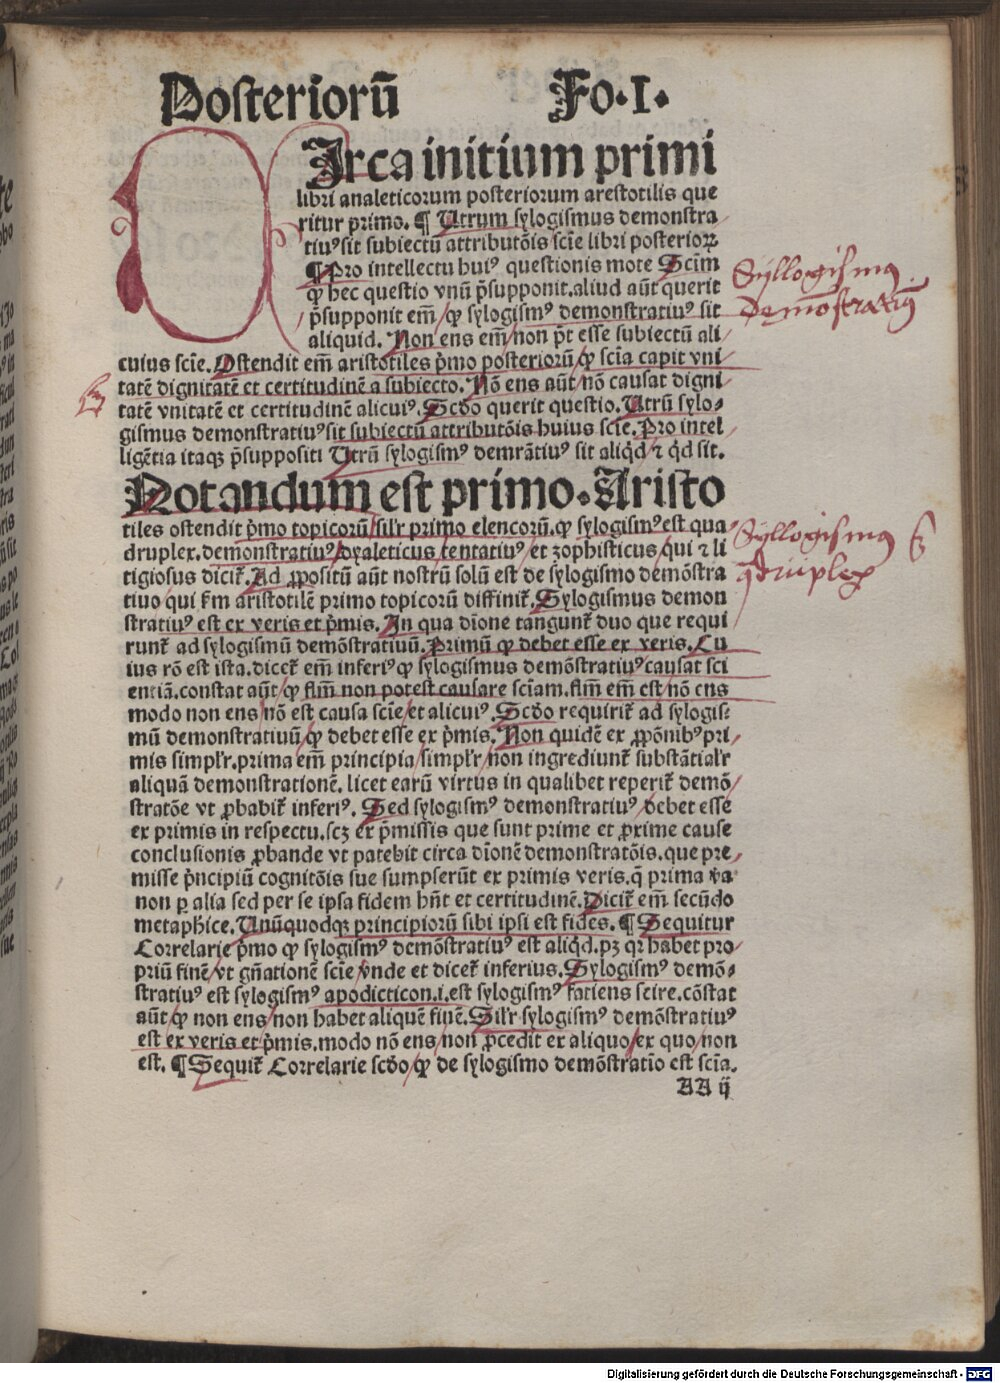 Posteriorū Fo.I.
CIrca initium primi
libri analeticorum posteriorum arestotilis que
ritur primo. ¶ Utrum sylogismus demonstra
tiuꝰ sit subiectū attributōis scīe libri posteriorꝝ
¶ Pro intellectu huiꝰ questionis mote Scīm
ꝙ hec questio vnū p̄supponit. aliud aūt querit
p̄supponit em̄/ꝙ sylogismꝰ demonstratiuꝰ sit
aliquid. Non ens em̄/non p̄t esse subiectū ali
cuius scīe. Ostendit em̄ aristotiles p̄mo posteriorū/ꝙ scīa capit vni
tatē dignitatē et certitudinē a subiecto. Nō ens aūt/nō causat digni/
tatē vnitatē et certitudinē alicuiꝰ. Scd̄o querit questio. Utrū sylo⸗
gismus demonstratiuꝰ sit subiectū attributōis huius scīe. Pro intel/
ligētia itaqꝫ p̄suppositi Utrū sylogismꝰ demrātiuꝰ sit aliqͥd ⁊ qͥd sit.
Notandum est primo. Aristo
tiles ostendit p̄mo topicorū/sil'r primo elencorū. ꝙ sylogismꝰ est qua/
druplex. demonstratiuꝰ/dyaleticus/tentatiuꝰ/et zophisticus/qui ⁊ li
tigiosus dicit᷑. Ad ꝓpositū aūt nostrū solū est de sylogismo demōstra
tiuo/qui s'm aristotilē primo topicorū diffinit᷑. Sylogismus demon
stratiuꝰ est ex veris et p̄mis. In qua dīone tangunt᷑ duo que requi
runt᷑ ad sylogismū demōstratiuū. Primū ꝙ debet esse ex veris. Cu
ius rō est ista. dicet᷑ em̄ inferiꝰ ꝙ sylogismus demōstratiuꝰ causat sci
entiā. constat aūt/ꝙ flm̄ non potest causare sciam. flm̄ em̄ est/nō ens
modo non ens/nō est causa scīe/et alicuiꝰ. Scd̄o requirit᷑ ad sylogis⸗
mū demonstratiuū/ꝙ debet esse ex p̄mis. Non quidē ex ꝓpōnibꝰ pri/
mis simpl'r. prima em̄ principia/simpl'r/non ingrediunt᷑ substātial'r
aliquā demonstrationē. licet earū virtus in qualibet reperit᷑ demō/
stratōe vt ꝓbabit᷑ inferiꝰ. Sed sylogismꝰ demonstratiuꝰ/debet esse
ex primis in respectu. scꝫ ex p̄missis que sunt prime et ꝓxime cause
conclusionis ꝓbande vt patebit circa dīonē demonstratōis. que pre/
misse p̄ncipiū cognitōis sue sumpserūt ex primis veris. q̄ prima v̄a
non ꝑ alia sed per se ipsa fidem hn̄t et certitudinē. Dicit᷑ em̄ secūdo
metaphice. Unūquodqꝫ principiorū sibi ipsi est fides. ¶ Sequitur
Correlarie p̄mo ꝙ sylogismꝰ demōstratiuꝰ est aliqͥd. pꝫ qꝛ habet pro/
priū finē/vt gn̄ationē scīe vnde et dicet᷑ inferius. Sylogismꝰ demō⸗
stratiuꝰ est sylogismꝰ apodicticon. i. est sylogismꝰ fatiens scire. cōstat
aūt/ꝙ non ens/non habet aliquē finē. Sil'r sylogismꝰ demōstratiuꝰ
est ex veris et p̄mis. modo nō ens/non ꝓcedit ex aliquo/ex quo/non
est. ¶ Sequit᷑ Correlarie scd̄o/ꝙ de sylogismo demōstratio est scīa.
AA ij
Syllogismus
demōstratiuꝰ
Syllogismus
q̄druplex
Digitalisierung gefördert durch die Deutsche Forschungsgemeinschaft - DFG